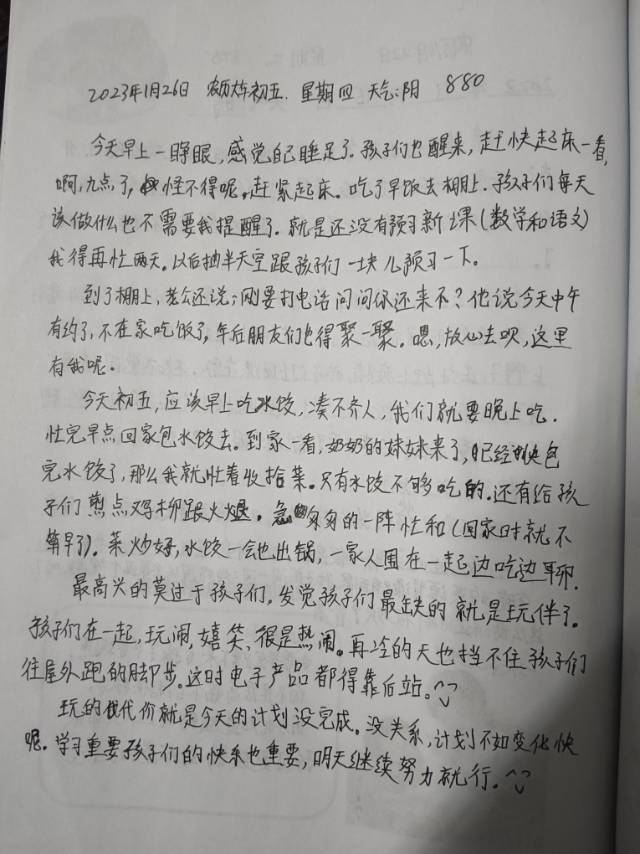 2023年1月26日 农历大年初五. 星期四 天气:阴 880
今天早上一睁眼,感觉自己睡足了.孩子们也醒来,赶快起床一看,
啊,九点了,怪不得呢.赶紧起床.吃了早饭去棚上.孩子们每天
该做什么也不需要我提醒了.就是还没有预习新课(数学和语文)
我得再忙两天.以后抽半天空跟孩子们一块儿预习一下.
到了棚上,老公还说:刚要打电话问问你还来不?他说今天中午
有约了,不在家吃饭了,年后朋友们也得聚一聚.嗯,放心去呗,这里
有我呢.
今天初五,应该早上吃水饺,凑不齐人,我们就要晚上吃.
忙完早点回家包水饺去.到家一看,奶奶的妹妹来了,已经快包
完水饺了,那么我就忙着收拾菜.只有水饺不够吃的.还有给孩
子们煎点鸡柳跟火腿.急匆匆的一阵忙和(回家时就不
算早了).菜炒好,水饺一会也出锅,一家人围在一起边吃边聊.
最高兴的莫过于孩子们,发觉孩子们最缺的就是玩伴了.
孩子们在一起,玩闹,嬉笑、很是热闹.再冷的天也挡不住孩子们
往屋外跑的脚步.这时电子产品都得靠后站.^_^
玩的代价就是今天的计划没完成.没关系,计划不如变化快
呢.学习重要孩子们的快乐也重要,明天继续努力就行.^_^